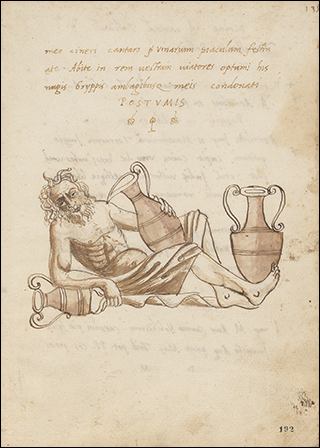 meo cineri cantaro p vinarium piaculum festin
ate · Abite in rem vestram viatores optumi his
nugis gryppis ambagibusq meis condonati
POSTVMIS
132